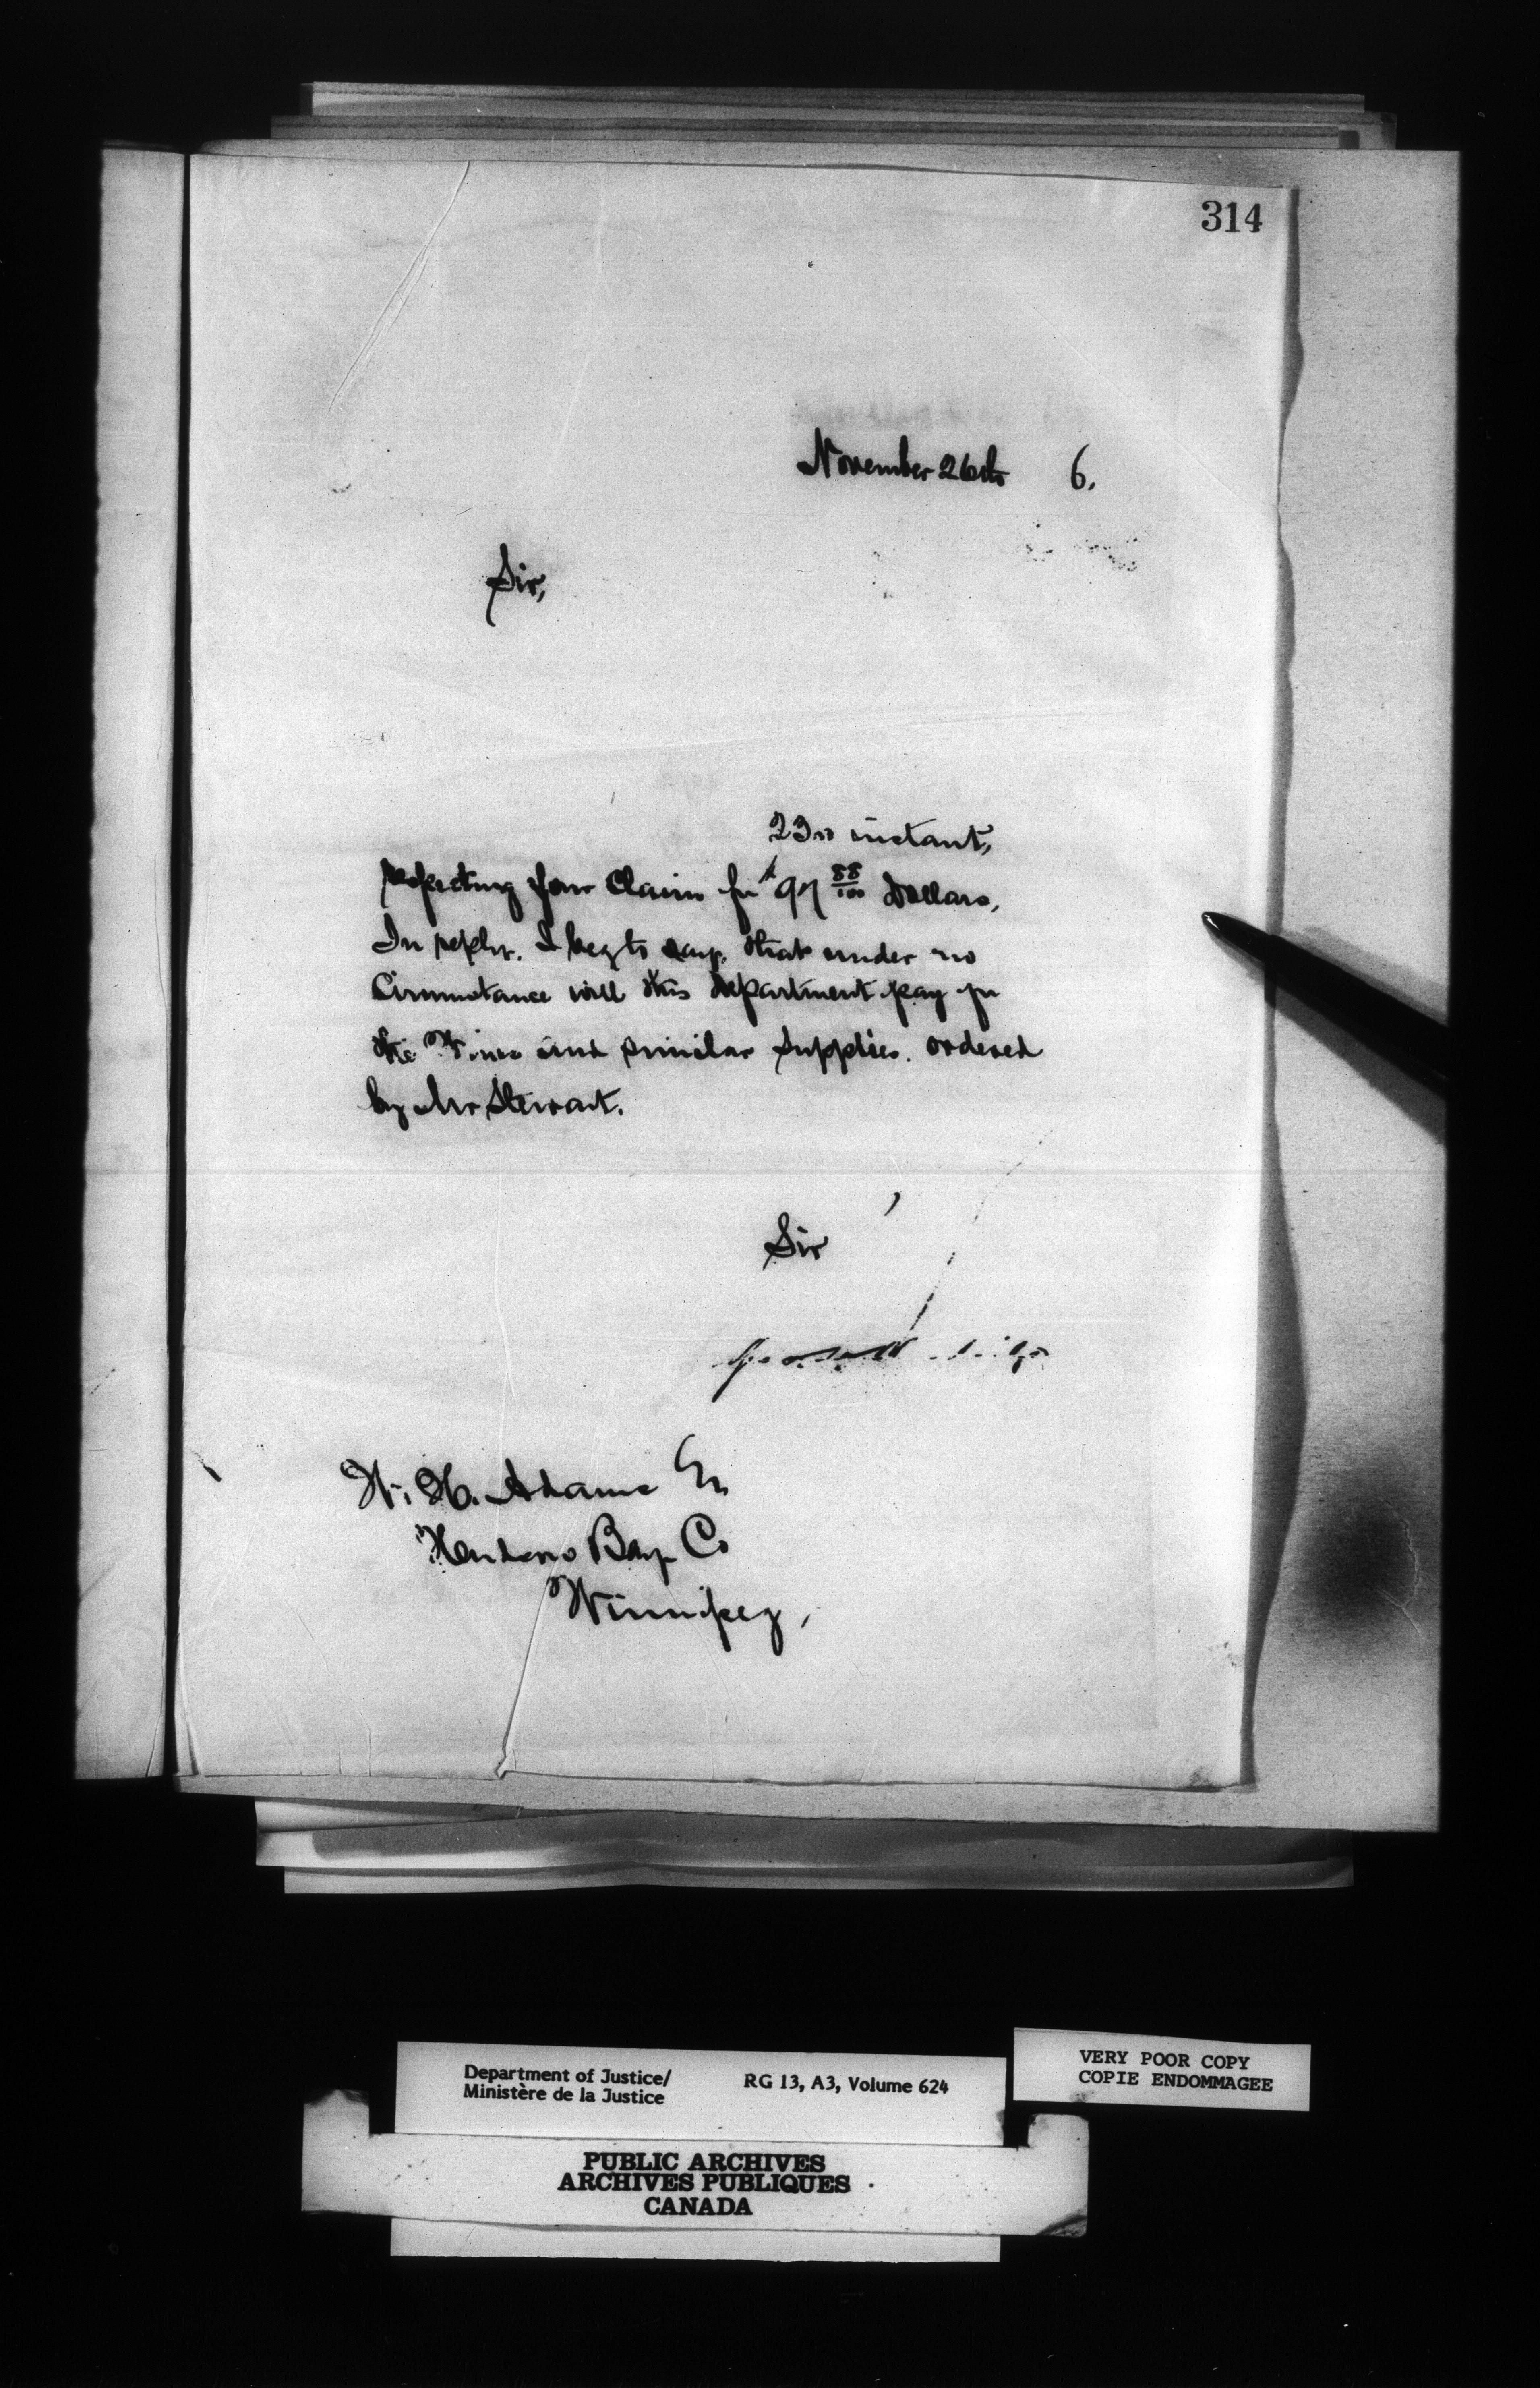 314
November 26th 6.
Sir,
23rd instant,
respecting your Claim for $97 88/100 Dollars,
In reply, I beg to say, that under no
Circumstance will this Department pay for
the Wines and similar supplies. ordered
by Mr Stewart.
Sir
W. H. Adams Esq
Hudsons Bay Co
Winnipeg,
Department of Justice/
Ministère de la Justice
RG 13, A3, Volume 624
VERY POOR COPY
COPIE ENDOMMAGEE
PUBLIC ARCHIVES
ARCHIVES PUBLIQUES
CANADA